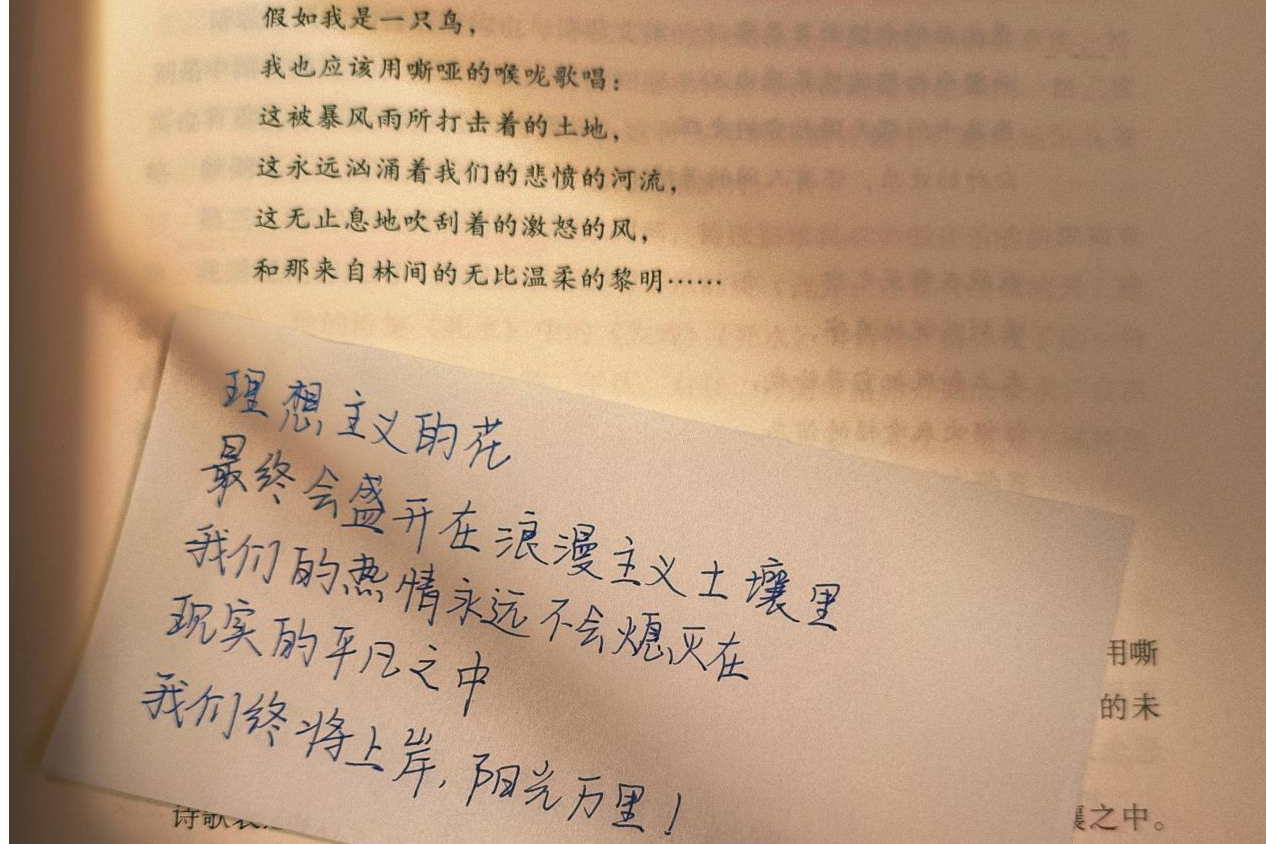 假如我是一只鸟，
我也应该用嘶哑的喉咙歌唱：
这被暴风雨所打击着的土地，
这永远汹涌着我们的悲愤的河流，
这无止息地吹刮着的激怒的风，
和那来自林间的无比温柔的黎明……
理想主义的花
最终会盛开在浪漫主义土壤里
我们的热情永远不会熄灭在
现实的平凡之中
我们终将上岸，阳光万里！
用嘶
的未
诗歌表
之中。